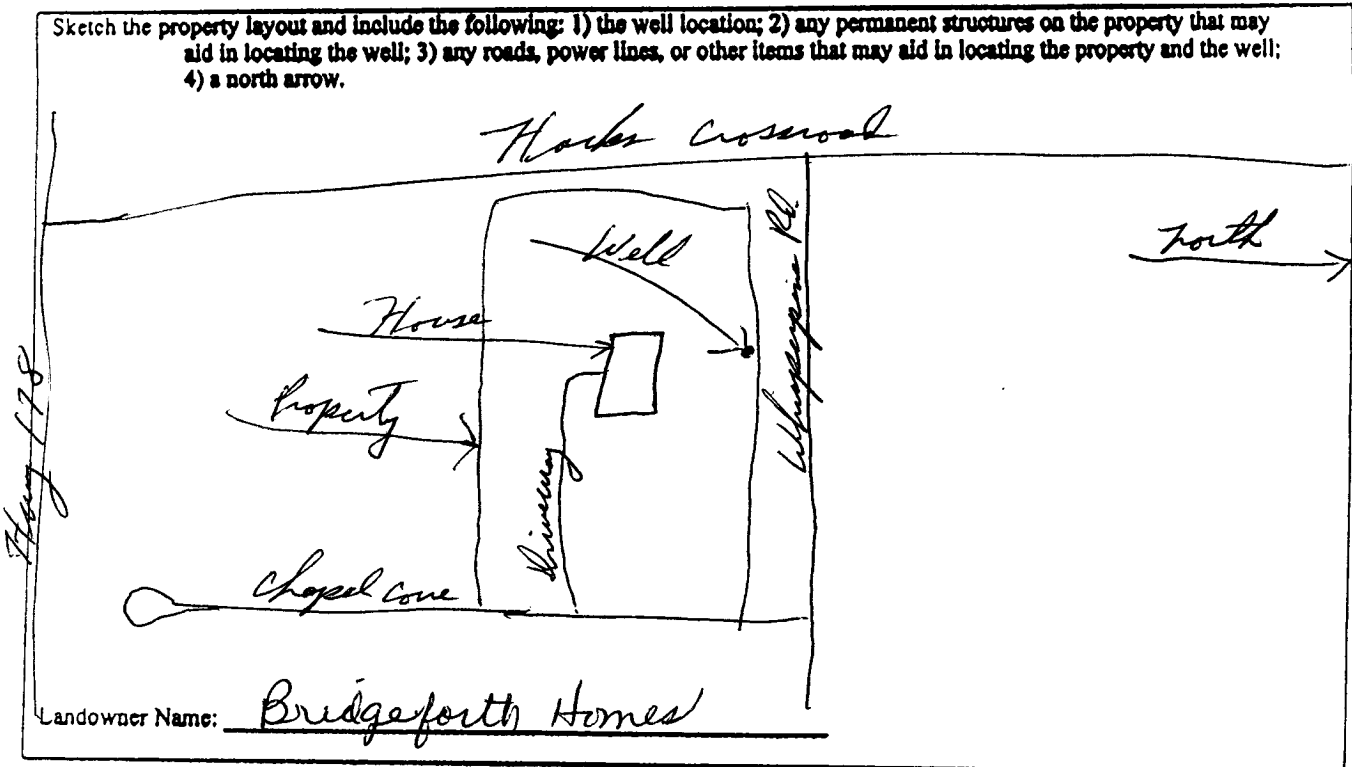 Sketch the property layout and include the following: 1) the well location; 2) any permanent structures on the property that may
aid in locating the well; 3) any roads, power lines, or other items that may aid in locating the property and the well;
4) a north arrow.
Hacks Crossroad
Well
Rd.
north
House
Property
Hwy 178
Driveway
Chapel cove
Landowner Name: Bridgeforth Homes